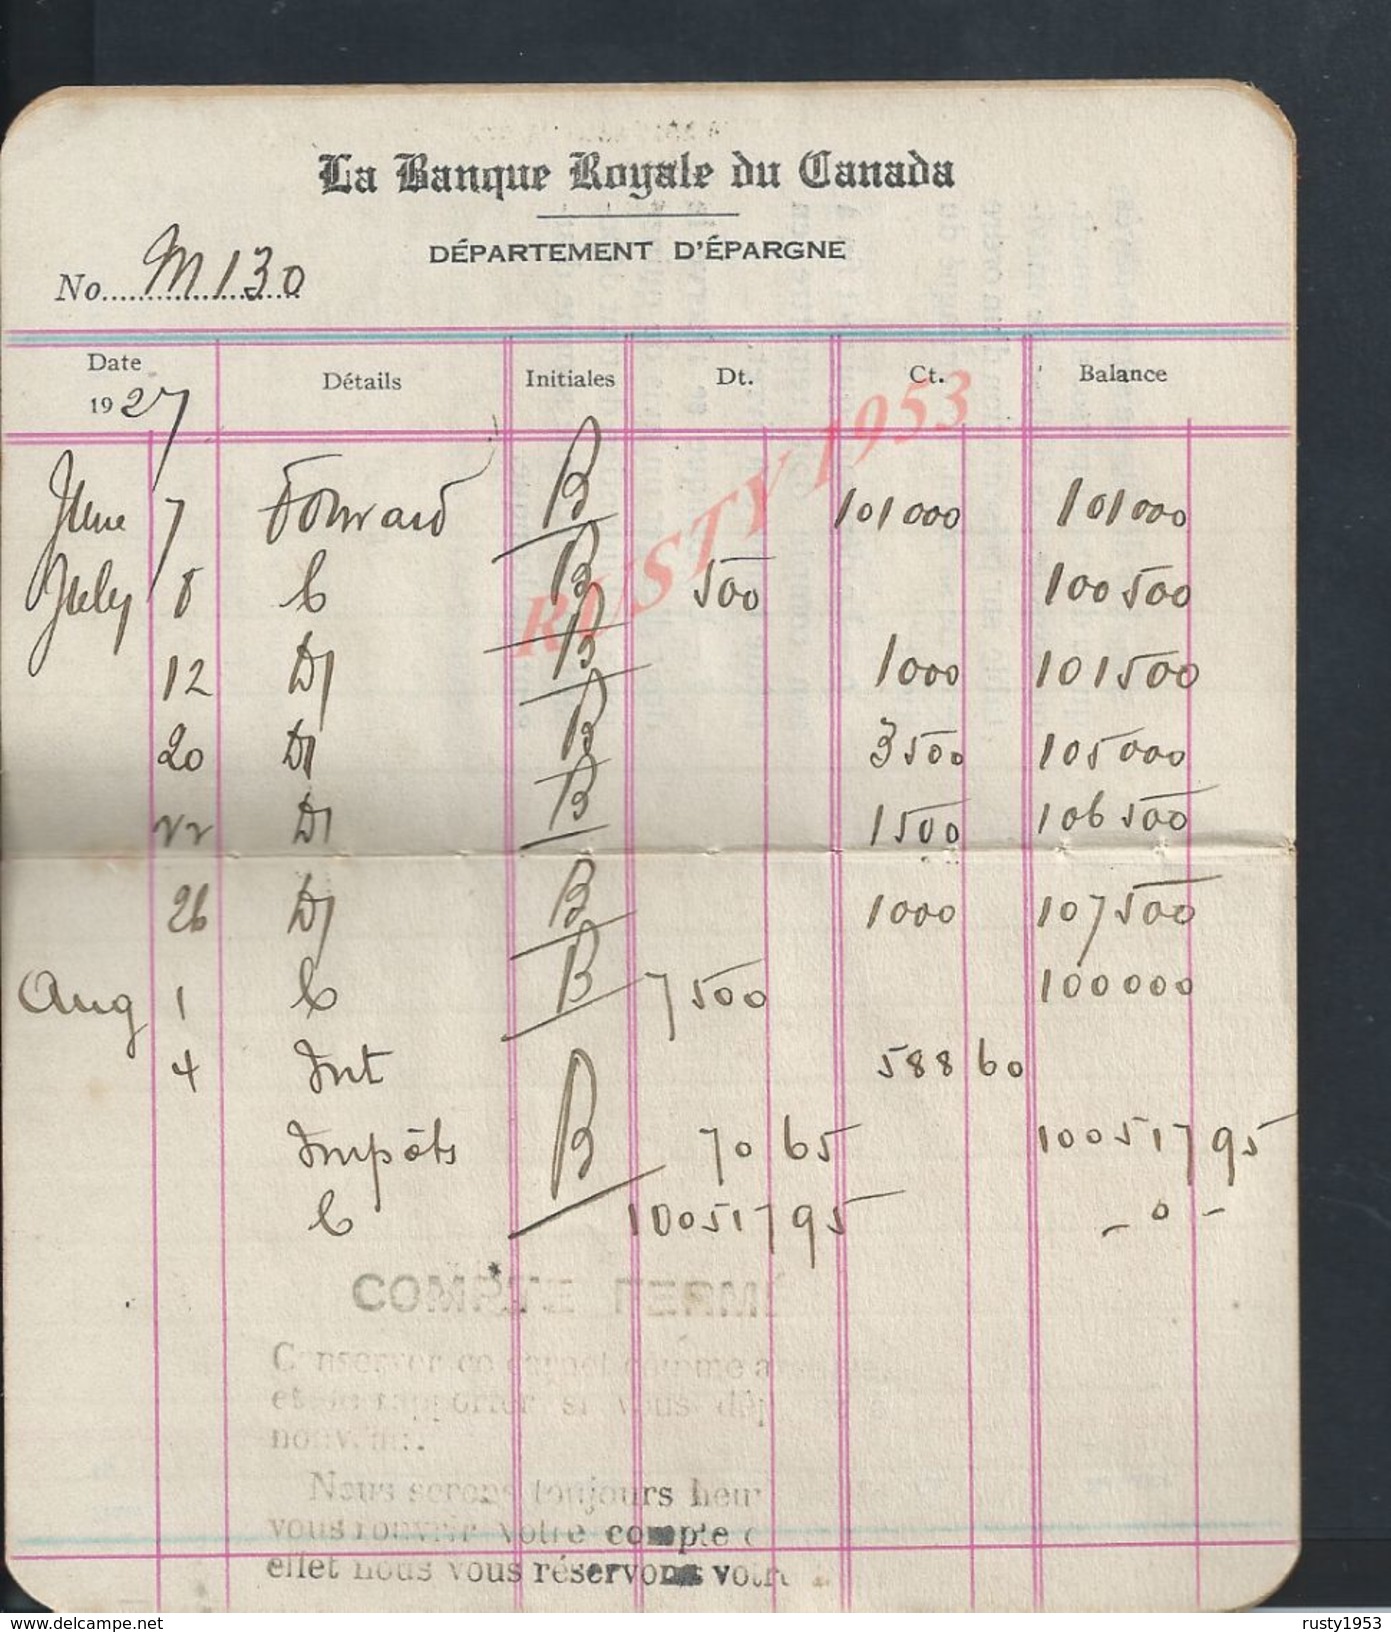 La Banque Royale du Canada
DÉPARTEMENT D'ÉPARGNE
No. M130
Date 1927 Détails Initiales Dt. Ct. Balance
June 7 Forward B 101000 101000
July 8 C B 500 100500
12 D/ B 1000 101500
20 D/ B 3500 105000
22 D/ B 1500 106500
26 D/ B 1000 107500
Aug 1 C B 7500 100000
4 Int 588 60
Impôts B 70 65 100517 95
C 100517 95 -0-
COMPTE TERMI
Conserver ce carnet comme
et le rapporter si vous dép
nouveau.
Nous serons toujours heur
vous rouvrir votre compte
effet nous vous réservons votre
RUSTY 1953
delcampe.net
rusty1953